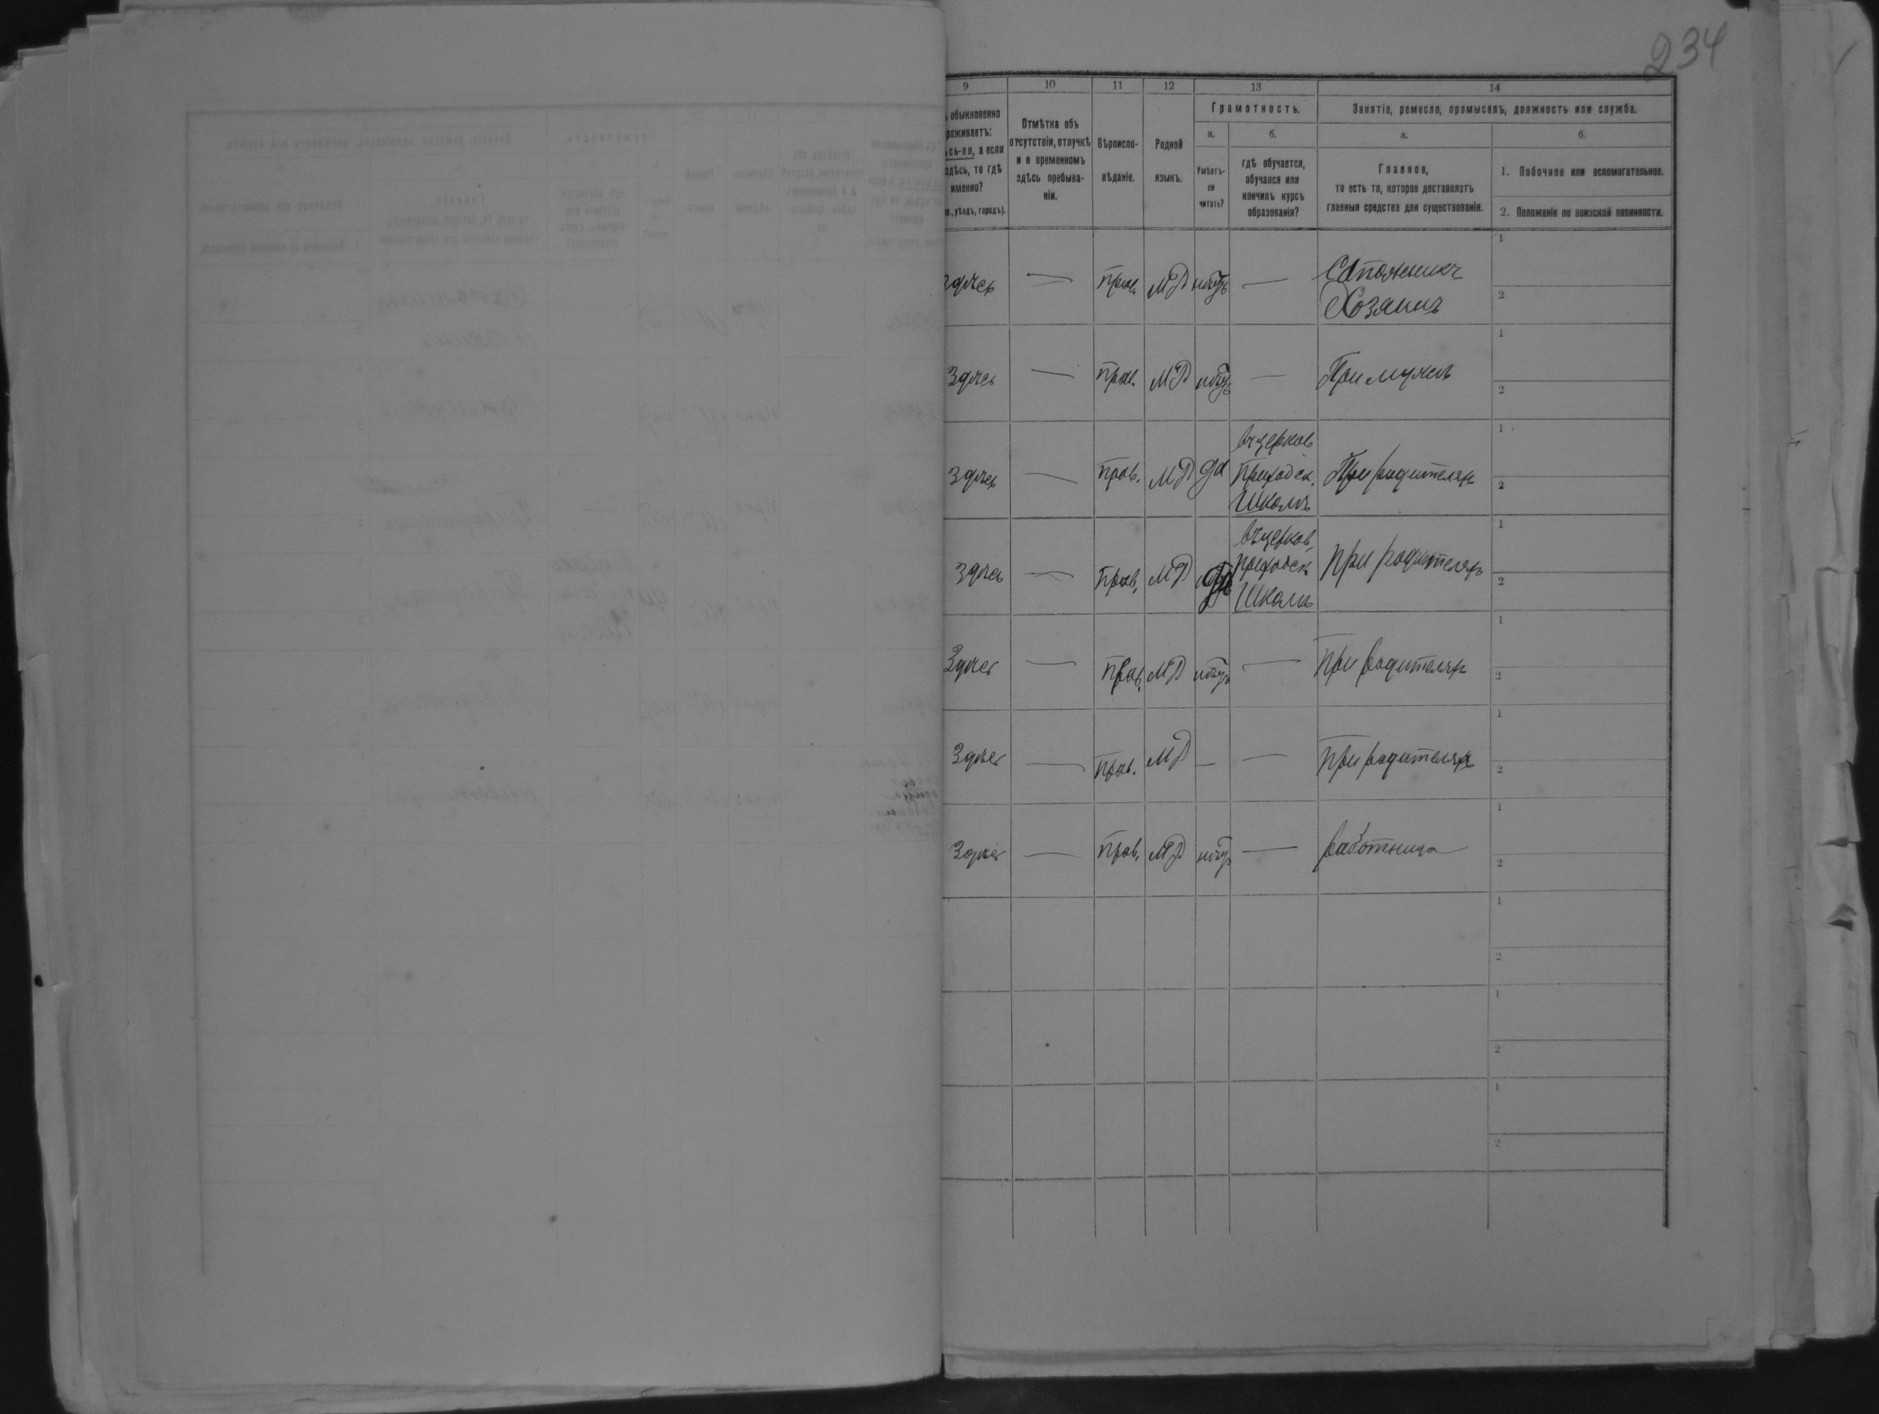 234
9 10 11 12 13 14
обыкновенно
роживаетъ:
сь-ли, а если
здѣсь, то гдѣ
именно?
уѣздъ, городъ).
Отмѣтка объ
отсутствіи, отлучкѣ
и о временномъ
здѣсь пребыва-
ніи.
Вѣроиспо-
вѣданіе.
Родной
языкъ.
Грамотность.
а.
Умѣетъ-
ли
читать?
б.
гдѣ обучается,
обучался или
кончилъ курсъ
образованія?
Занятіе, ремесло, промыселъ, должность или служба.
а.
Главное,
то есть то, которое доставляетъ
главныя средства для существованія.
б.
1. Побочное или вспомогательное.
2. Положеніе по воинской повинности.
здѣсь — прав. МР нѣтъ — Сапожникъ
Хозяинъ
1
2
Здѣсь — прав. МР нѣтъ — При мужѣ
1
2
здѣсь — прав. МР да въ церков. Приходск. Школѣ При родителяхъ
1
2
здѣсь — Прав. МР да въ церков. приходск Школѣ При родителяхъ
1
2
Здѣсь — Прав. МР нѣтъ — При родителяхъ
1
2
Здѣсь — прав. МР — — При родителяхъ
1
2
Здѣсь — прав. МР нѣтъ — работница
1
2
1
2
1
2
1
2